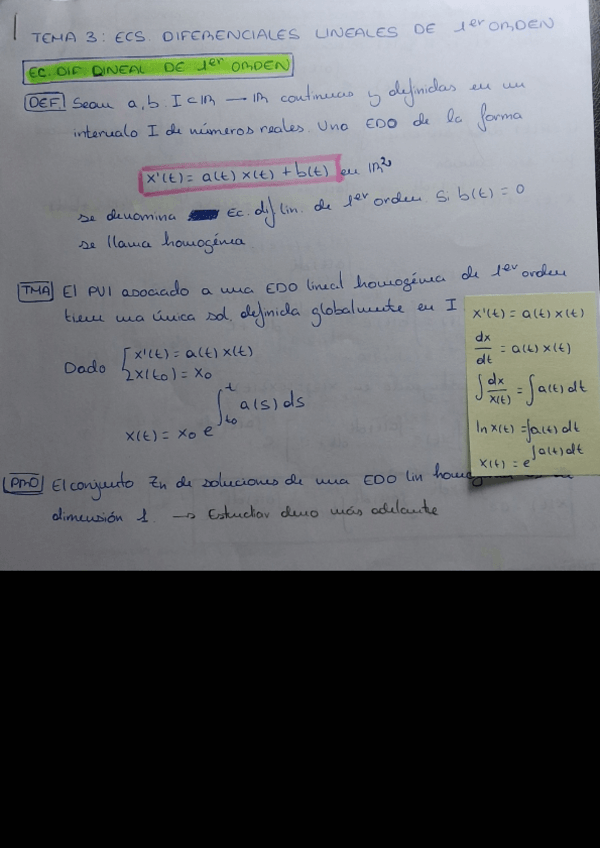 1
TEMA 3: ECS. DIFERENCIALES LINEALES DE 1er ORDEN
EC. DIF DINEAL DE 1er ORDEN
DEF. Sean a, b. I ⊂ IR → IR continuas y definidas en un
intervalo I de números reales. Una EDO de la forma
x'(t) = a(t) x(t) + b(t) en IR²
se denomina Ec. dif lin. de 1er orden. Si b(t) = 0
se llama homogénea.
TMA El PVI asociado a una EDO lineal homogénea de 1er orden
tiene una única sol. definida globalmente en I
Dado { x'(t) = a(t) x(t)
x(t₀) = x₀
x(t) = x₀ e^∫_{t₀}^{t} a(s) ds
x'(t) = a(t) x(t)
dx/dt = a(t) x(t)
∫ dx/x(t) = ∫ a(t) dt
ln x(t) = ∫a(t) dt
x(t) = e^∫a(t) dt
PRO El conjunto Zn de soluciones de una EDO lin
dimensión 1. → Estudiar demo más adelante